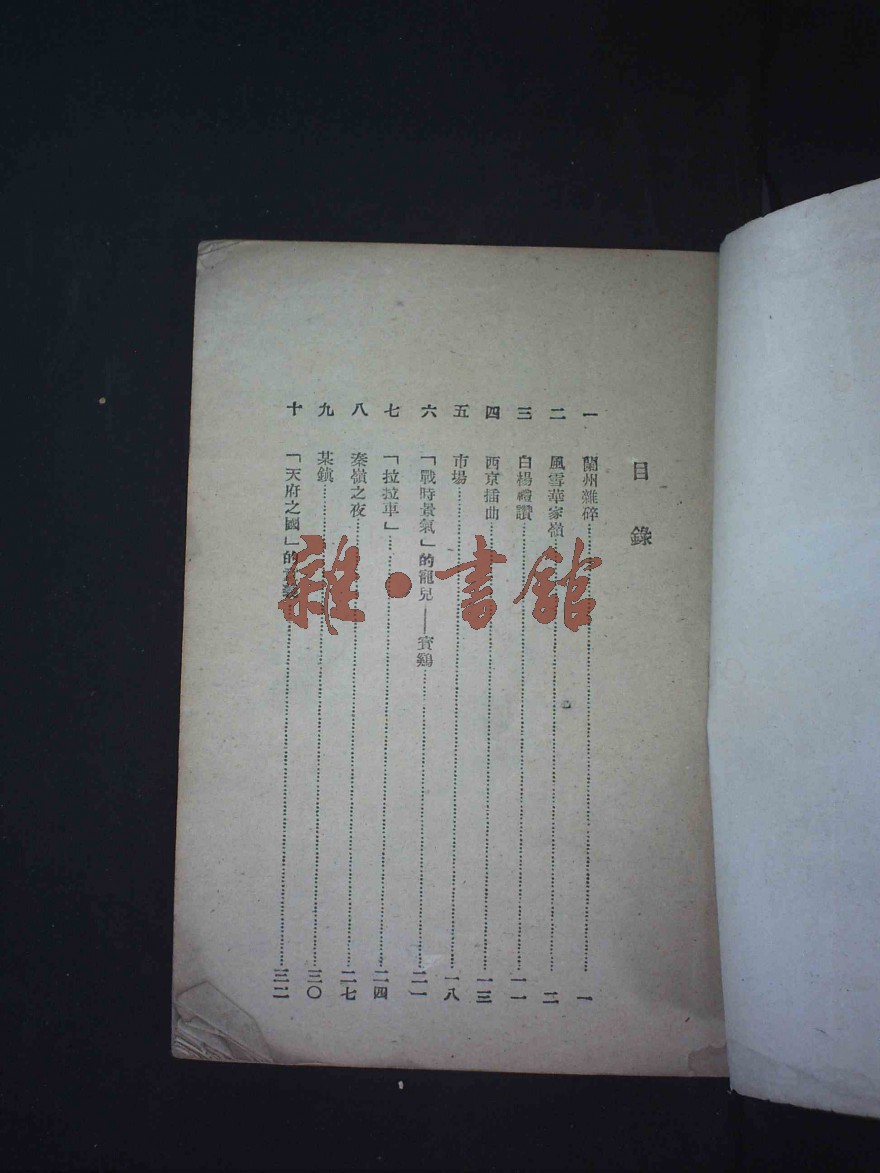 目錄
一 蘭州雜碎……一
二 風雪華家嶺……二
三 白楊禮讚……一一
四 西京插曲……一三
五 市場……一八
六 「戰時景氣」的寵兒——寶鷄……二一
七 「拉拉車」……二四
八 秦嶺之夜……二七
九 某鎮……三〇
十 「天府之國」的……三二
雜·書館